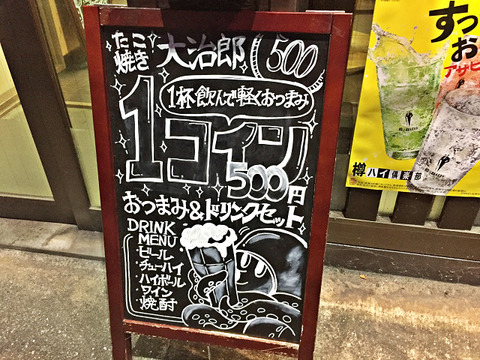 たこ焼き 大治郎 500
1杯飲んで軽くおつまみ
1コイン
500円
おつまみ&ドリンクセット
DRINK
MENU
ビール
チューハイ
ハイボール
ワイン
焼酎
すっ
お
アサヒ
樽ハイ倶楽部